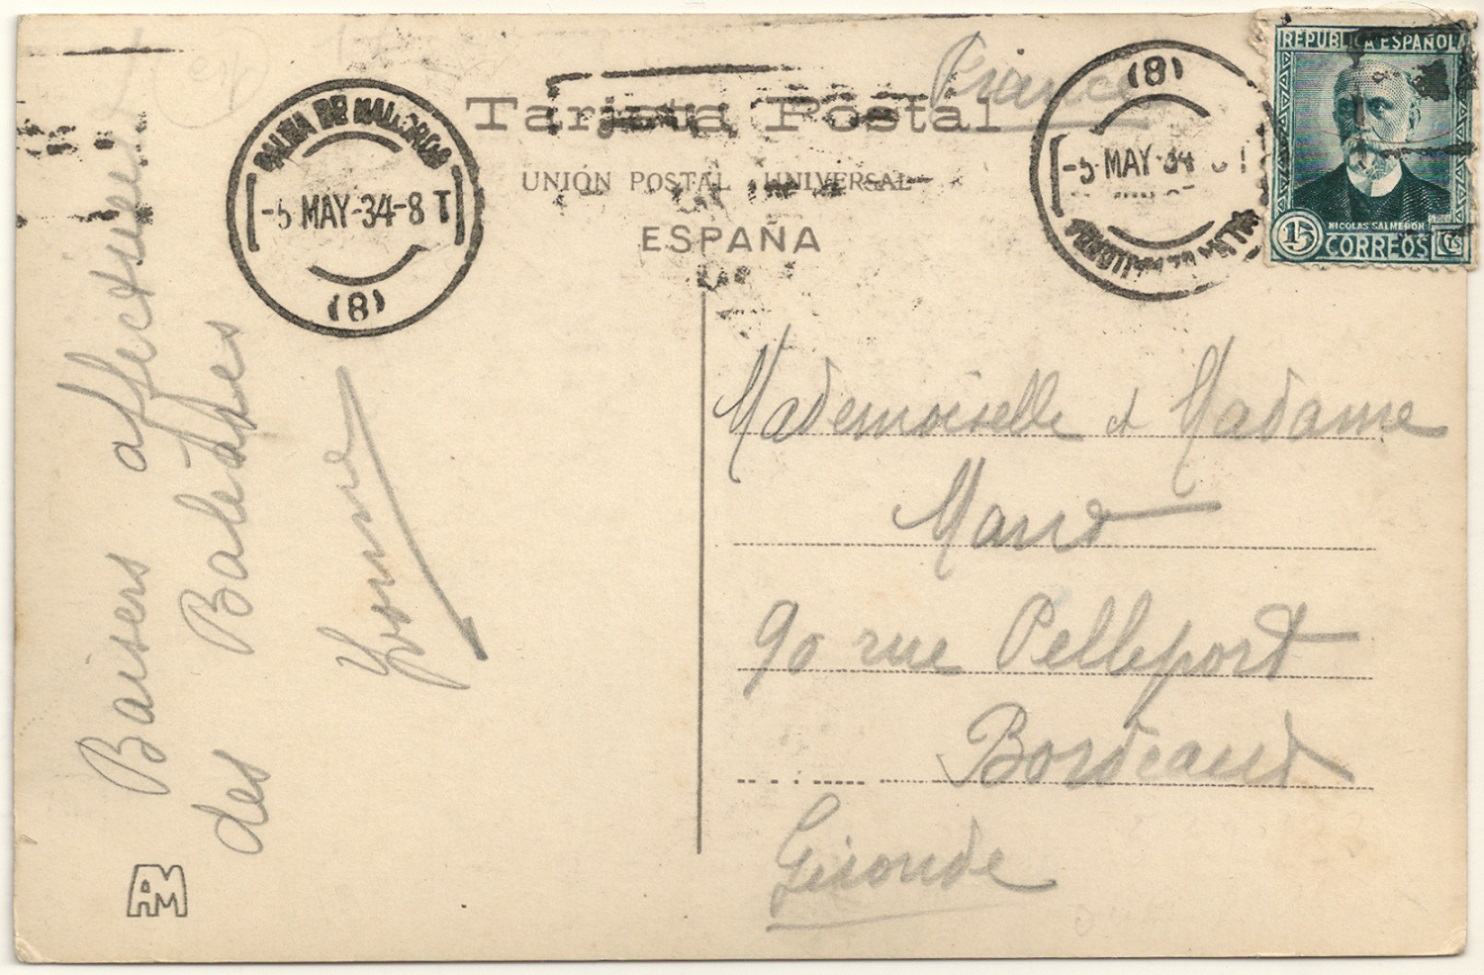 Tarjeta Postal
France
UNIÓN POSTAL UNIVERSAL
ESPAÑA
PALMA DE MALLORCA
-5 MAY-34-8 T
(8)
(8)
-5 MAY-34
PALMA DE MALLORCA
REPUBLICA ESPAÑOLA
NICOLAS SALMERON
15 CORREOS Cts
Baisers affectueux
des Baléares
Yvonne
AM
Mademoiselle et Madame
90 rue Pelleport
Bordeaux
Gironde